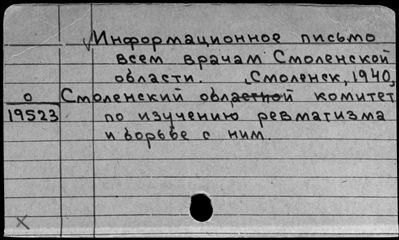 Информационное письмо
всем врачам Смоленской
области. Смоленск, 1940,
О Смоленский областной комитет
19523 по изучению ревматизма
и борьбе с ним.
X